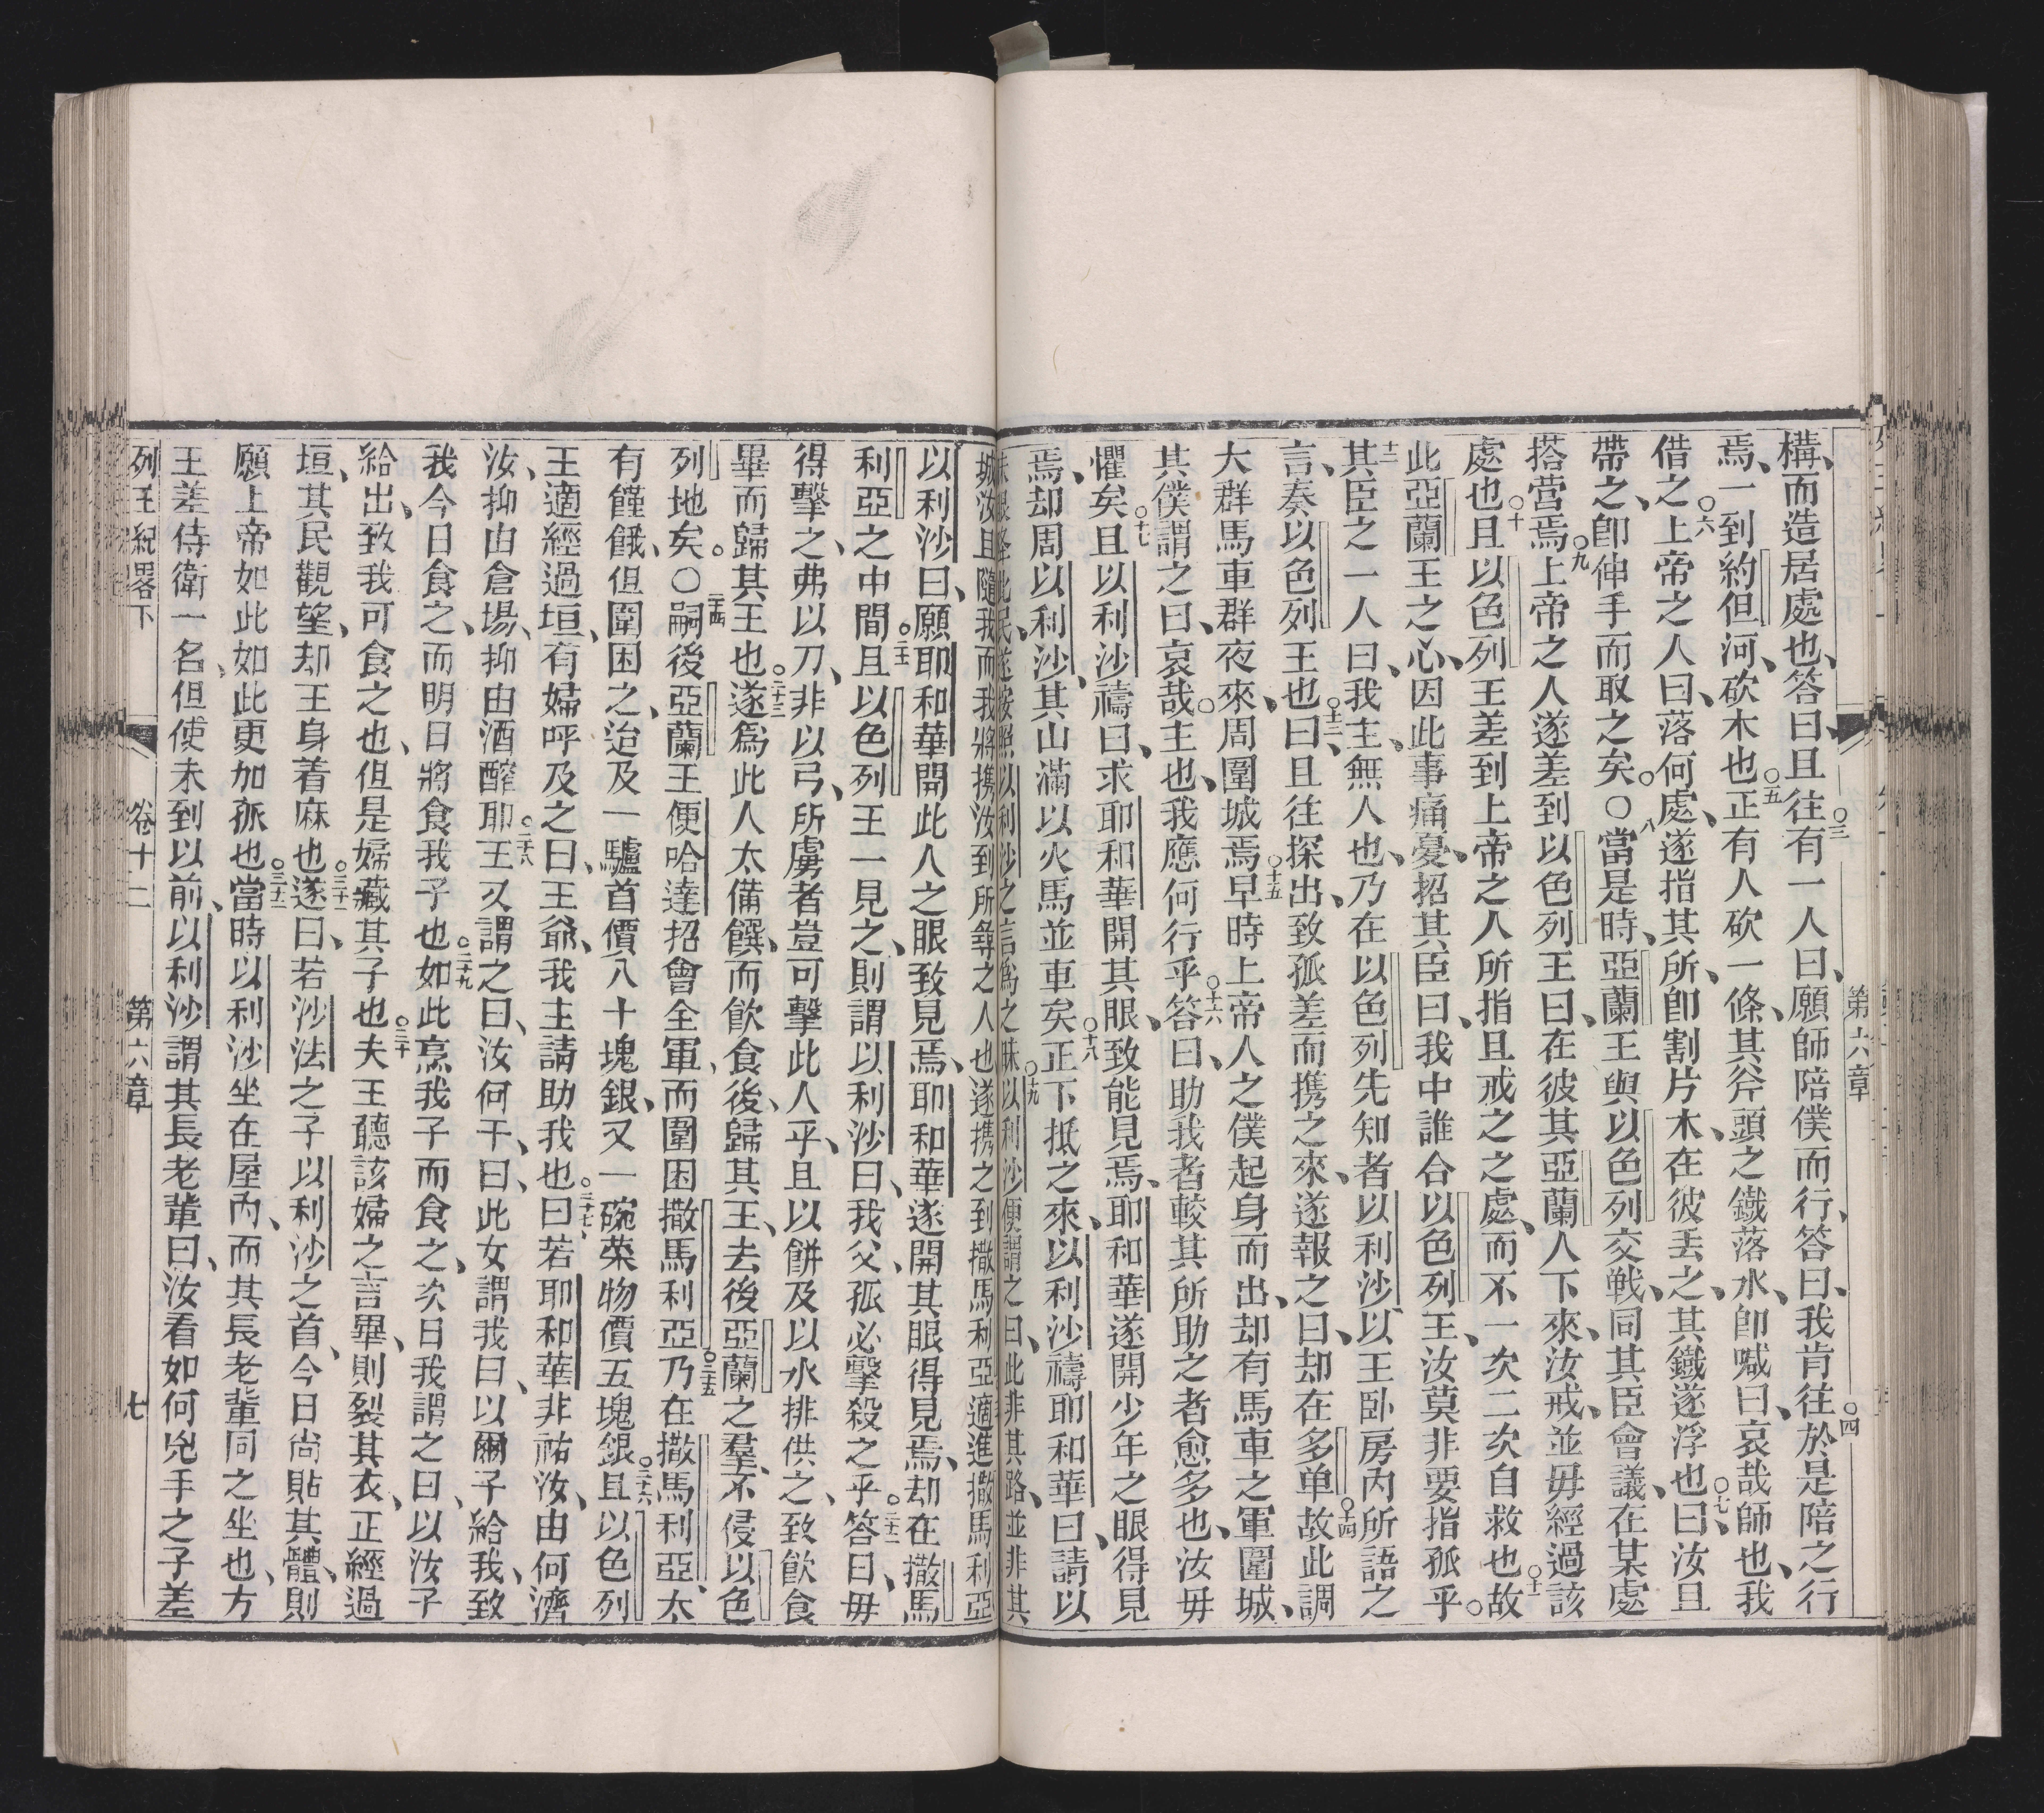 第六章
構、而造居處也、答曰、且往○三有一人曰、願師陪僕而行、答曰、我肯往○四於是陪之行
焉、一到約但河、砍木也○五正有人砍一條、其斧頭之鐵落水、卽喊曰、哀哉師也、我
借之○六上帝之人曰、落何處、遂指其所、卽割片木、在彼丟之、其鐵遂浮也○七曰、汝且
帶之、卽伸手而取之矣。○八當是時、亞蘭王與以色列交戰、同其臣會議、在某處
搭營焉○九上帝之人遂差到以色列王曰、在彼其亞蘭人下來、汝戒、並毋經過該
處也○十且以色列王差到上帝之人所指且戒之之處、而不一次二次自救也○十一故
此亞蘭王之心、因此事痛憂、招其臣曰、我中誰合以色列王、汝莫非要指孤乎。
十二其臣之一人曰、我主、無人也、乃在以色列先知者以利沙、以王卧房內所語之
言、奏以色列王也○十三曰、且往探出、致孤差而携之來、遂報之曰、却在多单○十四故此調
大群馬車群夜來、周圍城焉○十五早時上帝人之僕起身而出、却有馬車之軍圍城、
其僕謂之曰、哀哉。主也、我應何行乎○十六答曰、助我者較其所助之者愈多也、汝毋
懼矣○十七且以利沙禱曰、求耶和華開其眼、致能見焉、耶和華遂開少年之眼得見
焉、却周以利沙、其山滿以火馬並車矣○十八正下抵之來、以利沙禱耶和華曰、請以
昧眼擊此民、遂按照以利沙之言爲之昧○十九以利沙便謂之曰、此非其路、並非其
城、汝且隨我、而我將携汝到所尋之人也、遂携之到撒馬利亞適進撒馬利亞
以利沙曰、願耶和華開此人之眼致見焉、耶和華遂開其眼得見焉、却在撒馬
利亞之中間○二十一且以色列王一見之、則謂以利沙曰、我父、孤必擊殺之乎○二十二答曰、毋
得擊之、弗以刀、非以弓、所虜者豈可擊此人乎、且以餅及以水排供之、致飲食
畢而歸其王也○二十三遂爲此人太備饌、而飲食後、歸其王、去後亞蘭之羣、不侵以色
列地矣。○二十四嗣後亞蘭王便哈達招會全軍、而圍困撒馬利亞○二十五乃在撒馬利亞、太
有饉餓、但圍困之、迨及一驢首價八十塊銀、又一碗菜物價五塊銀○二十六且以色列
王適經過垣、有婦呼及之曰、王爺、我主請助我也○二十七曰、若耶和華非祐汝、由何濟
汝、抑由倉場、抑由酒醡耶○二十八王又謂之曰、汝何干、曰、此女謂我曰、以爾子給我、致
我今日食之、而明日將食我子也○二十九如此烹我子而食之、次日我謂之曰、以汝子
給出、致我可食之也、但是婦藏其子也○三十夫王聽該婦之言畢、則裂其衣、正經過
垣、其民觀望、却王身着麻也○三十一遂曰、若沙法之子以利沙之首、今日尚貼其體、則
願上帝如此如此更加孤也○三十二當時以利沙坐在屋內、而其長老輩同之坐也、方
王差侍衛一名、但使未到以前、以利沙謂其長老輩曰、汝看如何兇手之子差
列王紀畧下 卷十二 第六章 七